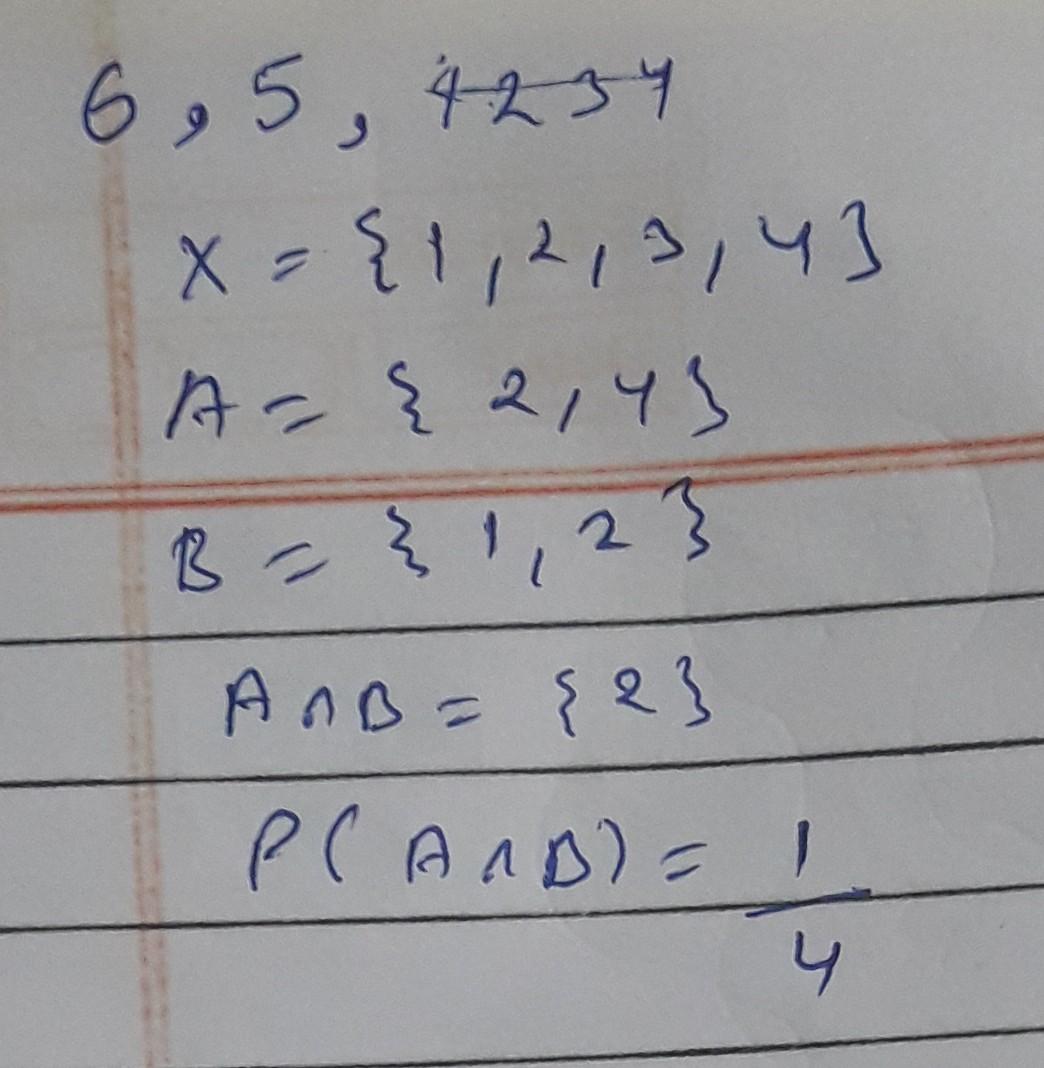 6, 5, 4234
X = {1, 2, 3, 4}
A = { 2, 4}
B = { 1, 2 }
A ∩ B = {2}
P( A ∩ B) = 1/4